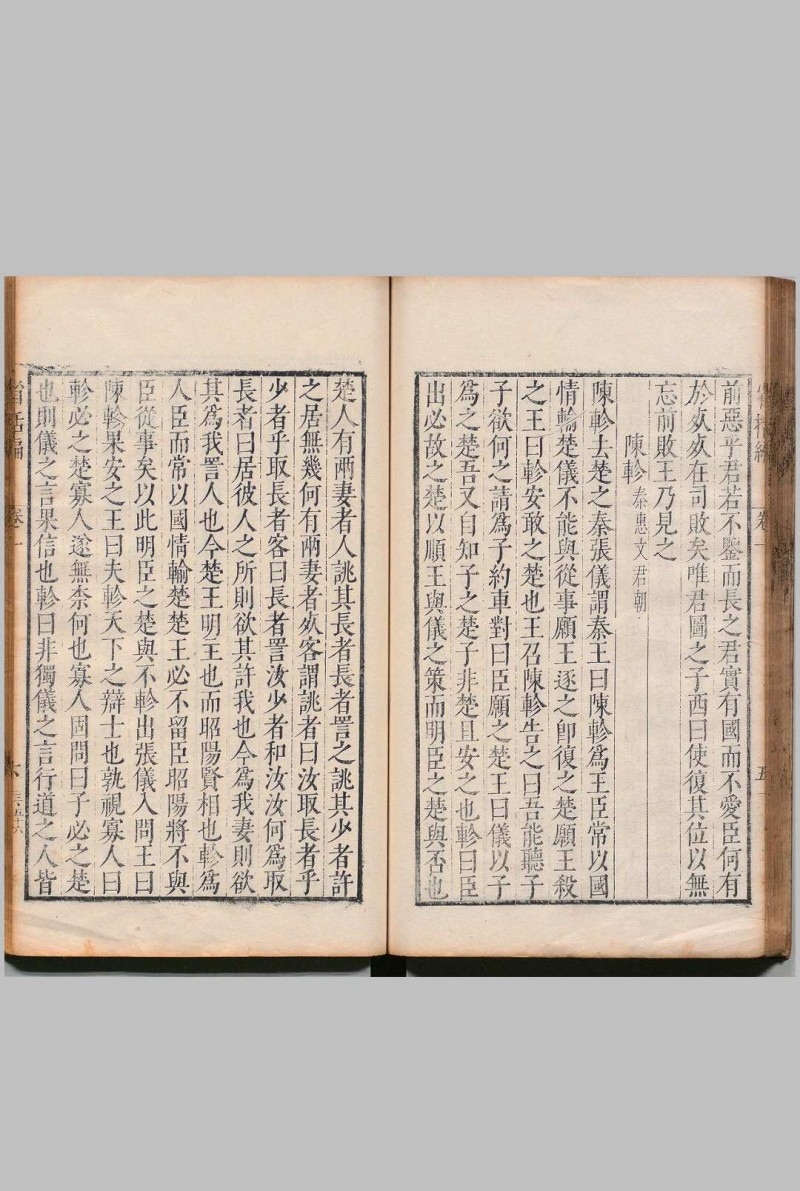 前惡乎君若不鑒而長之君實有國而不愛臣何有
於死死在司敗矣唯君圖之子西曰使復其位以無
忘前敗王乃見之
陳軫秦惠文君朝
陳軫去楚之秦張儀謂秦王曰陳軫爲王臣常以國
情輸楚儀不能與從事願王逐之卽復之楚願王殺
之王曰軫安敢之楚也王召陳軫告之曰吾能聽子
子欲何之請爲子約車對曰臣願之楚王曰儀以子
爲之楚吾又自知子之楚子非楚且安之也軫曰臣
出必故之楚以順王與儀之策而明臣之楚與否也
楚人有兩妻者人誂其長者長者詈之誂其少者許
之居無幾何有兩妻者死客謂誂者曰汝取長者乎
少者乎取長者客曰長者詈汝少者和汝汝何爲取
長者曰居彼人之所則欲其許我也今爲我妻則欲
其爲我詈人也今楚王明王也而昭陽賢相也軫爲
人臣而常以國情輸楚楚王必不留臣昭陽將不與
臣從事矣以此明臣之楚與不軫出張儀入問王曰
陳軫果安之王曰夫軫天下之辯士也孰視寡人曰
軫必之楚寡人遂無柰何也寡人固問曰子必之楚
也則儀之言果信也軫曰非獨儀之言行道之人皆